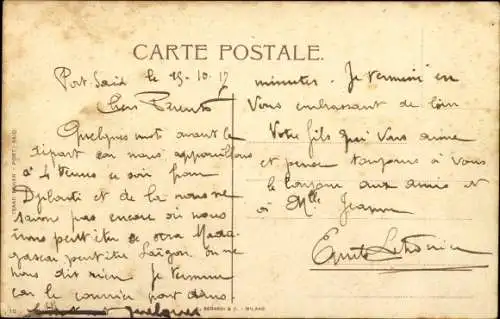 CARTE POSTALE.
Port Said le 25-10-17
Chers Parents
Quelques mots avant le
départ car nous appareillons
à 4 heures ce soir pour
Djibouti et de la nous ne
savons pas encore où nous
irons peut être ce sera Mada
gascar peut être Saïgon on ne
nous dit rien Je termine
car le courrier part dans
quelques
minutes. Je termine en
Vous embrassant de loin
Votre fils qui Vous aime
et pense toujours à vous
le bonjour aux amis et
à Mlle Jeanne
Emile
PORT-SAID
10
BERARDI & C. - MILANO